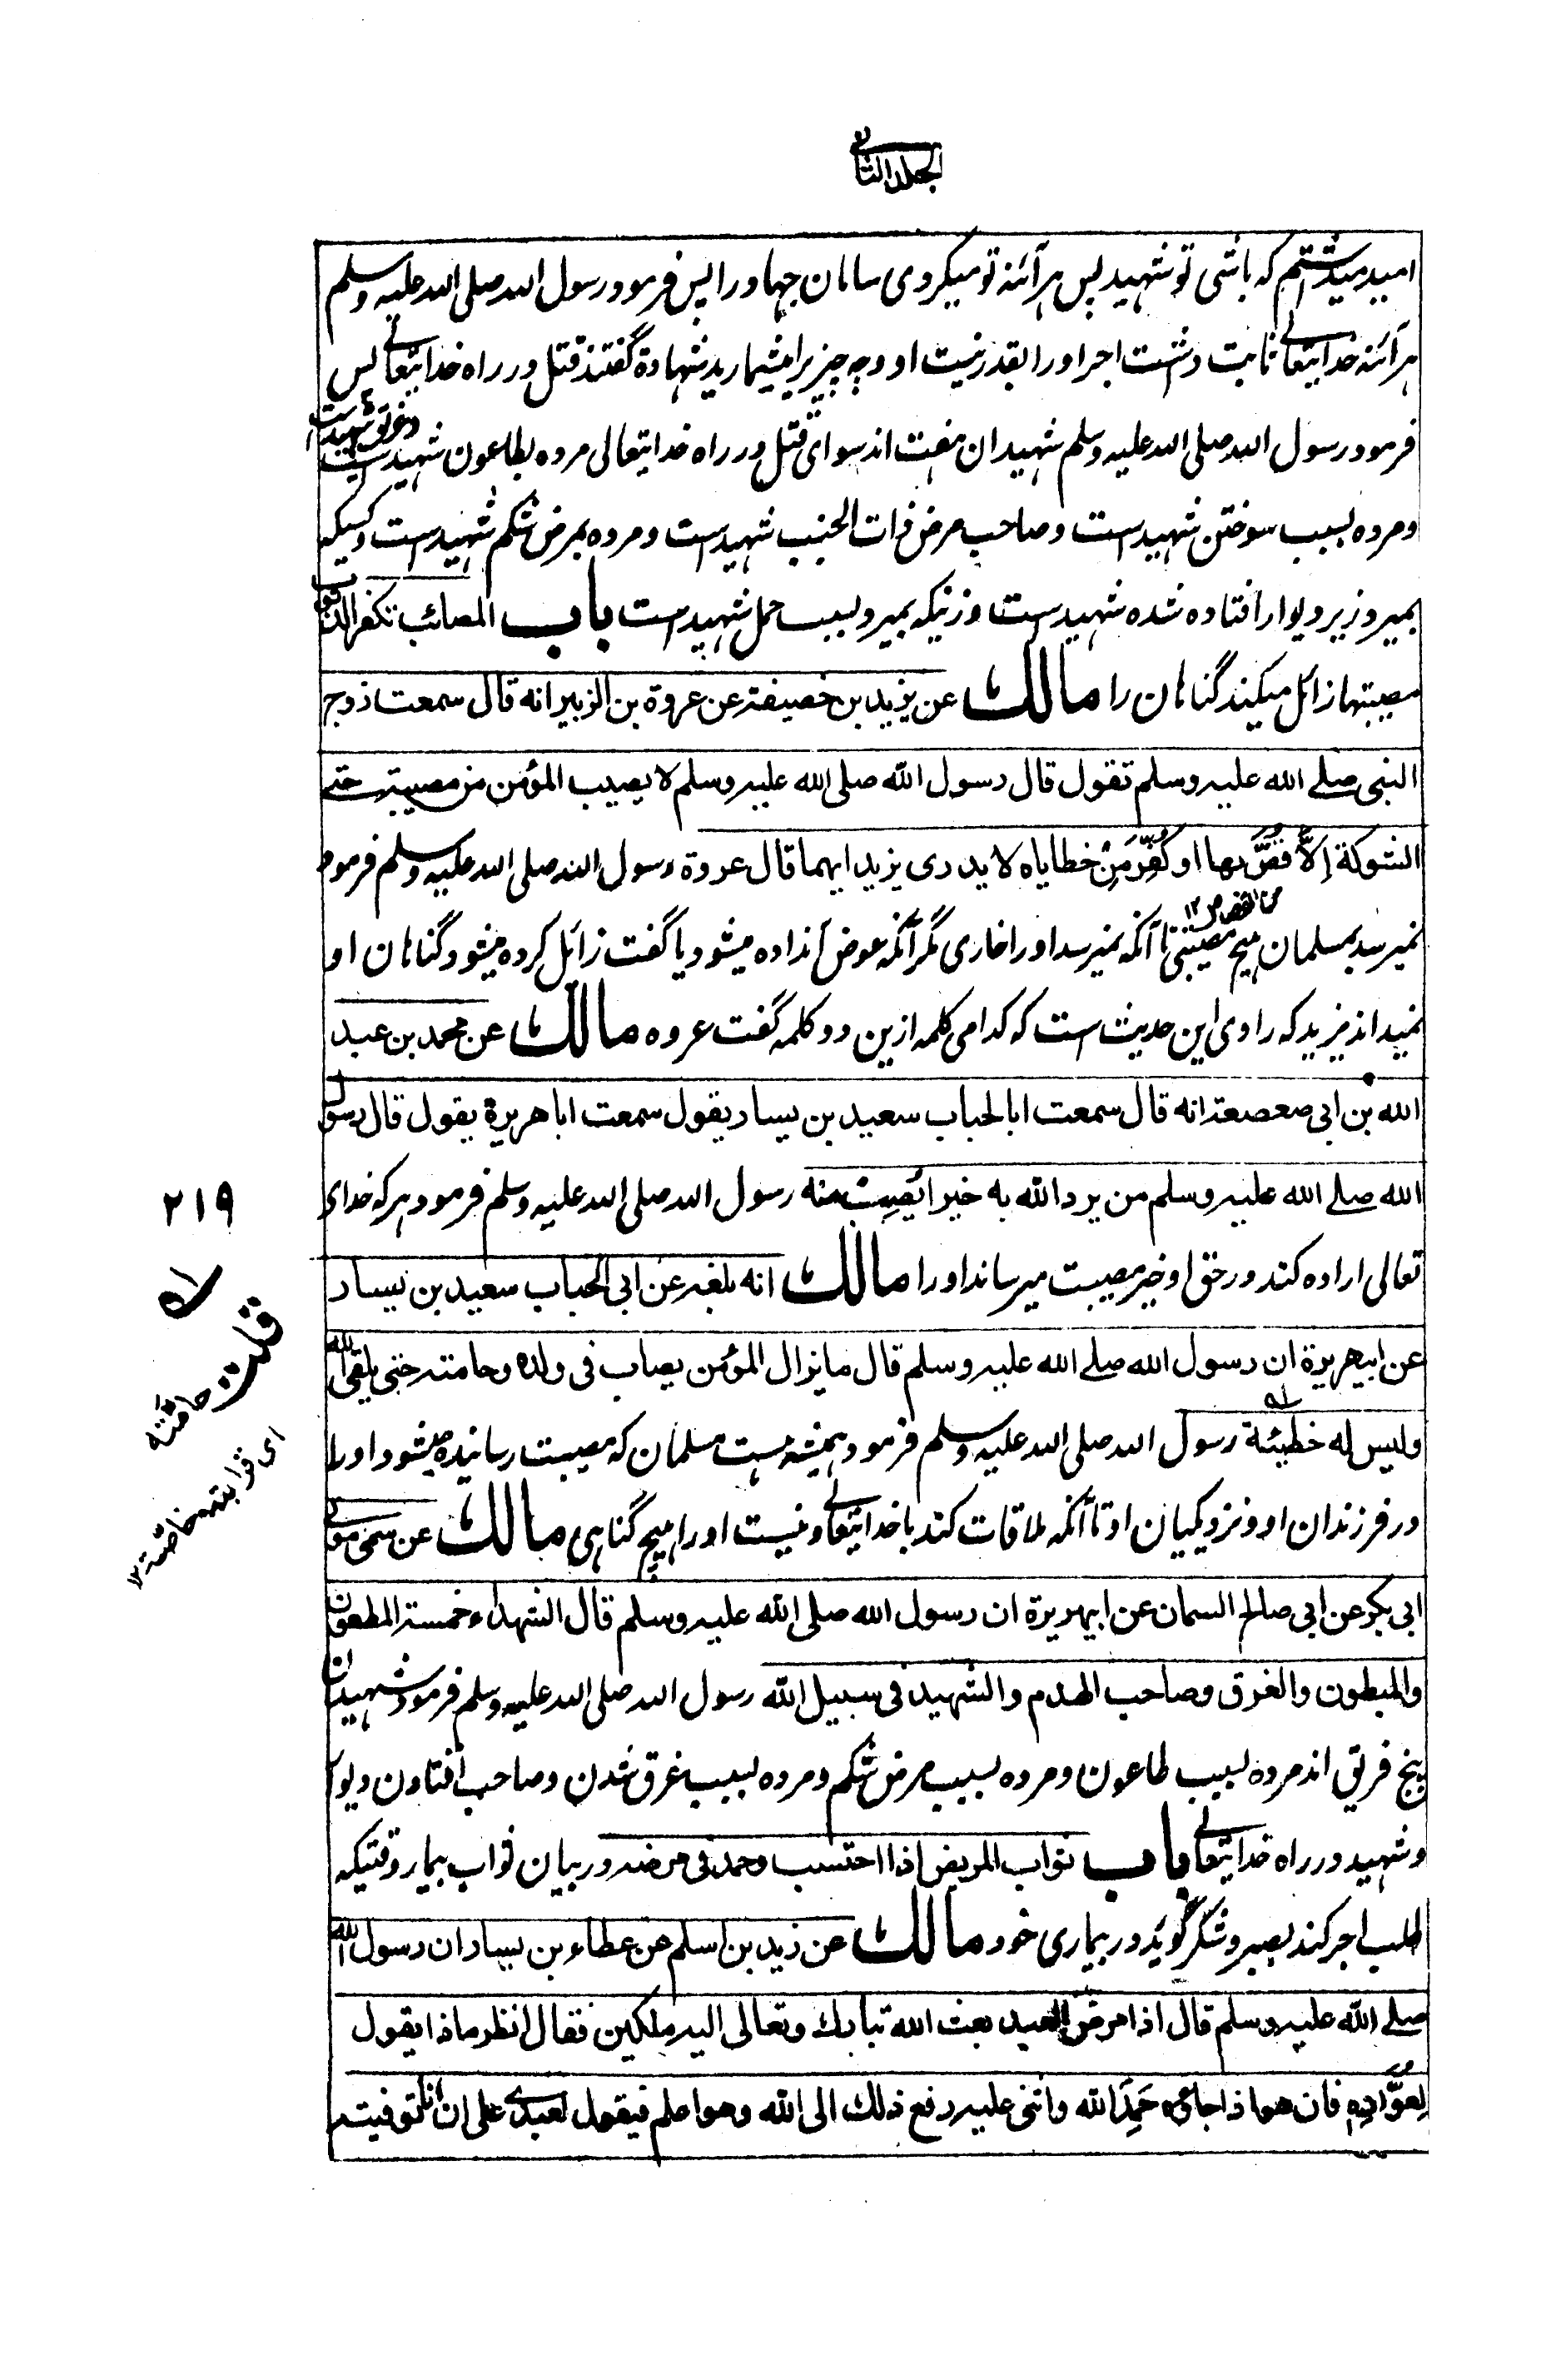 الجلد الثانی
امید میداشتم که باشی تو شهید پس هر آئنه تو میکردی سامان جهاد را پس فرمود رسول الله صلی الله علیه وسلم
هر آئنه خدایتعالی ثابت داشت اجر او را بقدر نیت او و چه چیز را میشمارید شهادة گفتند قتل در راه خدایتعالی پس
فرمود رسول الله صلی الله علیه وسلم شهیدان هفت اند سوای قتل در راه خدایتعالی مرده بطاعون شهید ست و غریق شهید ست
و مرده بسبب سوختن شهید ست و صاحب مرض ذات الجنب شهید ست و مرده بمرض شکم شهید ست و کسیکه
بمیرد زیر دیوار افتاده شده شهید ست و زنیکه بمیرد بسبب حمل شهید ست باب المصائب تکفر الذنوب
مصیبتها زائل میکند گناهان را مالك عن یزید بن خصیفة عن عروة بن الزبیر انه قال سمعت زوج
النبی صلے الله علیه وسلم تقول قال رسول الله صلی الله علیه وسلم لا یصیب المؤمن من مصیبة حتی
الشوكة إلاَّ قُصَّ بها او كُفِّرَ مِنْ خطایاه لا یدری یزید ایهما قال عروة رسول الله صلی الله علیه وسلم فرمود
من القصاص ١٢
نمیرسد بمسلمان هیچ مصیبتی تا آنکه نمیرسد او را خاری مگر آنکه عوض آنداده میشود یا گفت زائل کرده میشود گناهان او
نمیداند یزید که راوی این حدیث است که کدامی کلمه ازین دو کلمه گفت عروه مالك عن محمد بن عبد
الله بن ابی صعصعة انه قال سمعت ابا الحباب سعید بن یسار یقول سمعت ابا هریرة یقول قال رسول
الله صلے الله علیه وسلم من یرد الله به خیرا یُصِبْ منه رسول الله صلی الله علیه وسلم فرمود هر که خدای
تعالی اراده کند در حق او خیر مصیبت میرساند او را مالك انه بلغه عن ابی الحباب سعید بن یسار
عن ابیهریرة ان رسول الله صلے الله علیه وسلم قال ما یزال المؤمن یصاب فی ولده وحامته حتی یلقی الله
ولیس له خطیئة رسول الله صلی الله علیه وسلم فرمود همیشه هست مسلمان که مصیبت رسانیده میشود او را
در فرزندان او و نزدیکیان او تا آنکه ملاقات کند با خدایتعالی و نیست او را هیچ گناهی مالك عن سمی مولی
ابی بکر عن ابی صالح السمان عن ابیهریرة ان رسول الله صلی الله علیه وسلم قال الشهداء خمسة المطعون
والمبطون والغرق وصاحب الهدم والشهید فی سبیل الله رسول الله صلی الله علیه وسلم فرمود شهیدان
پنج فریق اند مرده بسبب طاعون و مرده بسبب مرض شکم و مرده بسبب غرق شدن و صاحب افتادن دیوار
و شهید در راه خدایتعالی باب ثواب المریض اذا احتسب وحمد فی مرضه در بیان ثواب بیمار وقتیکه
طلب اجر کند بصبر و شکر گوید در بیماری خود مالك عن زید بن اسلم عن عطاء بن یسار ان رسول الله
صلے الله علیه وسلم قال اذا مرض العبد بعث الله تبارك وتعالی الیه ملکین فقال انظر ماذا یقول
لعُوَّادِهِ فان هو اذا جاؤه حَمِدَ الله واثنی علیه رفع ذلك الی الله وهو اعلم فیقول لعبدی علی ان انا توفیته
٢١٩
قلت حامته
ای قرابته خاصّة ١٢